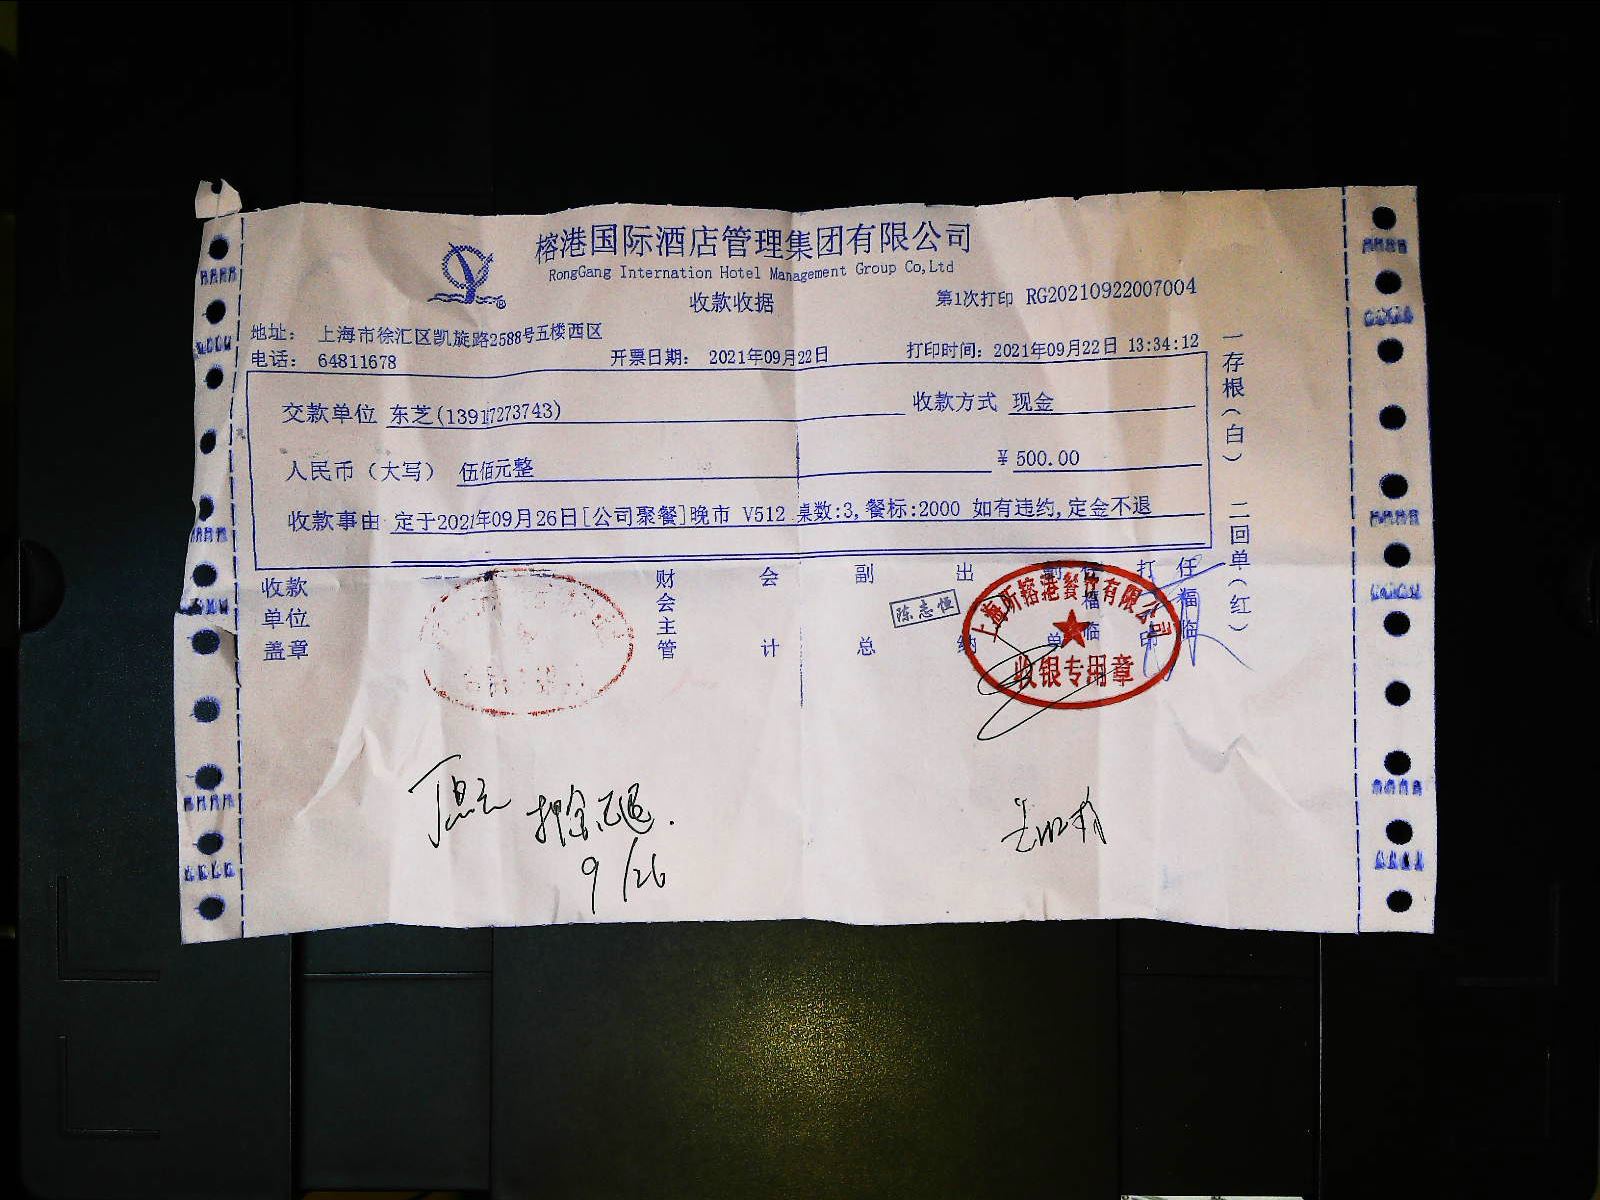 榕港国际酒店管理集团有限公司
RongGang Internation Hotel Management Group Co,Ltd
收款收据
第1次打印 RG20210922007004
地址： 上海市徐汇区凯旋路2588号五楼西区
电话： 64811678 开票日期： 2021年09月22日 打印时间：2021年09月22日 13:34:12
交款单位 东芝(13917273743) 收款方式 现金
人民币（大写） 伍佰元整 ¥ 500.00
收款事由 定于2021年09月26日[公司聚餐]晚市 V512 桌数:3,餐标:2000 如有违约,定金不退
一存根(白) 二回单(红)
收款单位盖章
财会主管
会计
副总
出纳
陈志恒
副单
任福临
打印
任福临
收银专用章
押金已退.
9/26